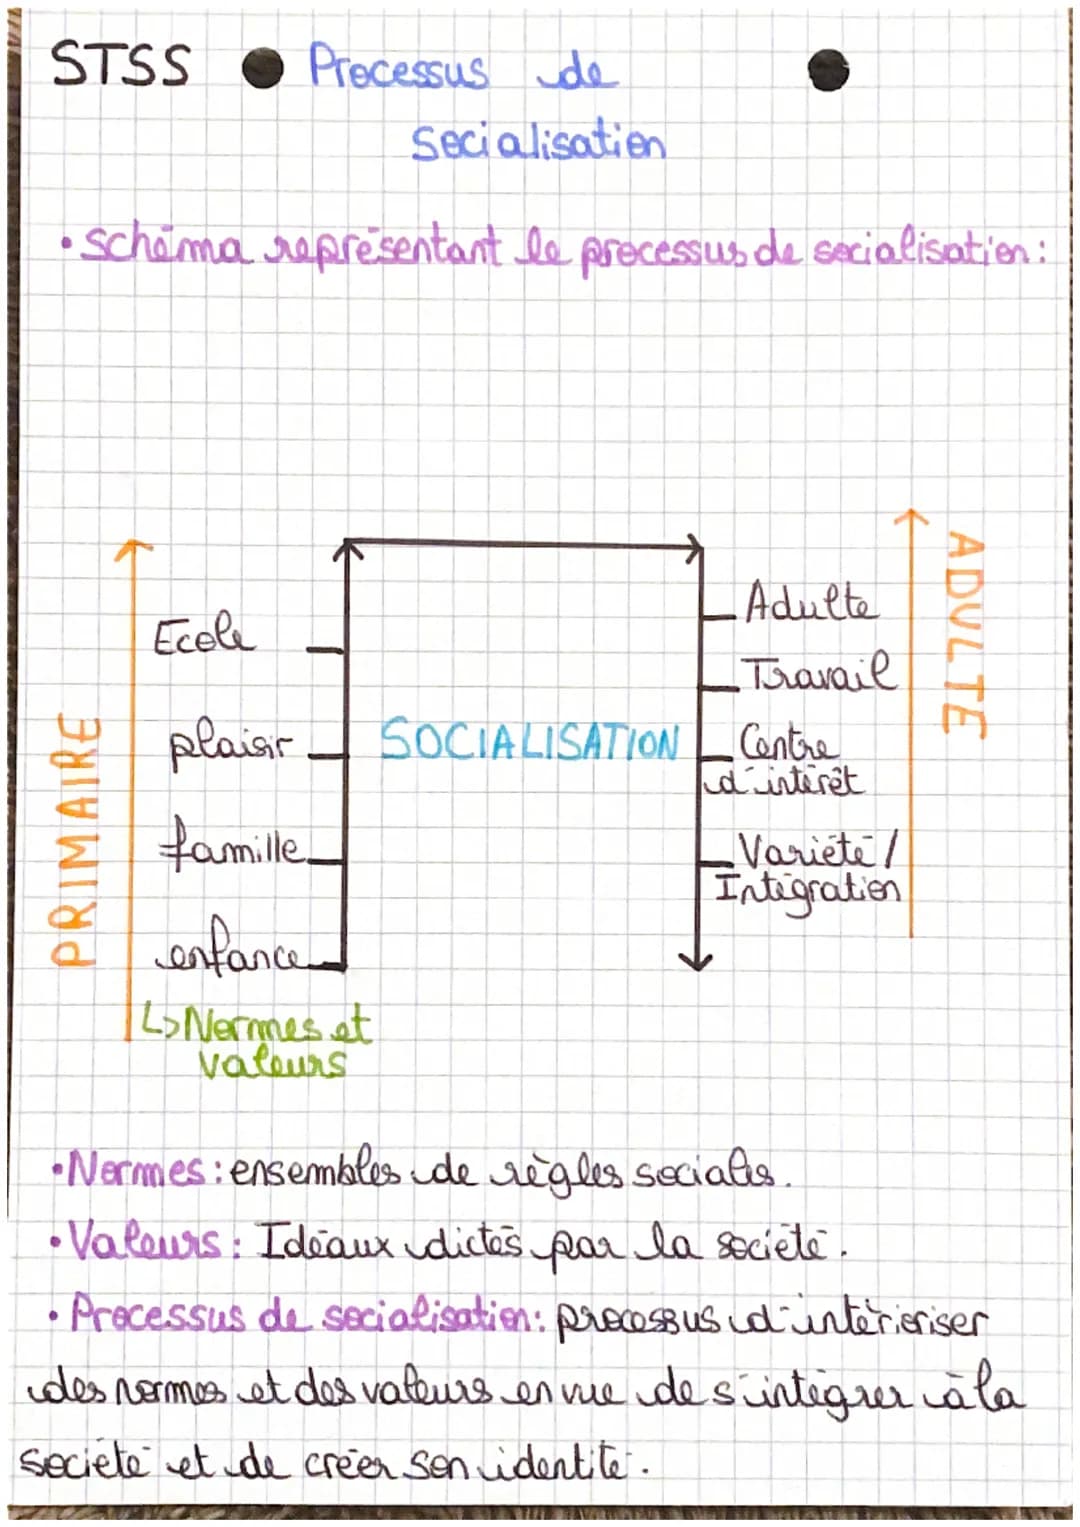 STSS Processus de
Socialisation
• schéma représentant le processus de socialisation :
PRIMAIRE
Ecole
plaisir
famille
enfance
↳ Normes et
valeurs
SOCIALISATION
Adulte
Travail
Centre
d'intérêt
Variété /
Intégration
ADULTE
• Normes : ensembles de règles sociales.
• Valeurs : Idéaux dictés par la société.
• Processus de socialisation : processus d'intérioriser
des normes et des valeurs en vue de s'intégrer à la
société et de créer son identité.